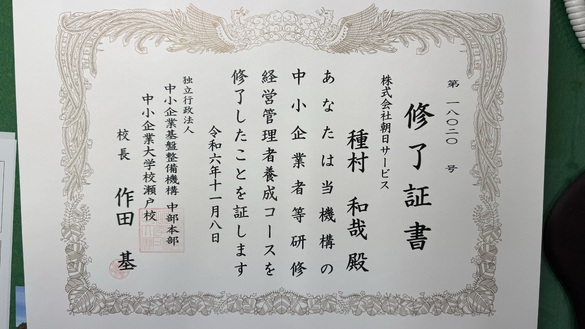 第 一八〇二〇 号
修了証書
株式会社朝日サービス
種村 和哉 殿
あなたは当機構の
中小企業者等研修
経営管理者養成コースを
修了したことを証します
令和六年十一月八日
独立行政法人
中小企業基盤整備機構 中部本部
中小企業大学校瀬戸校
校長 作田 基